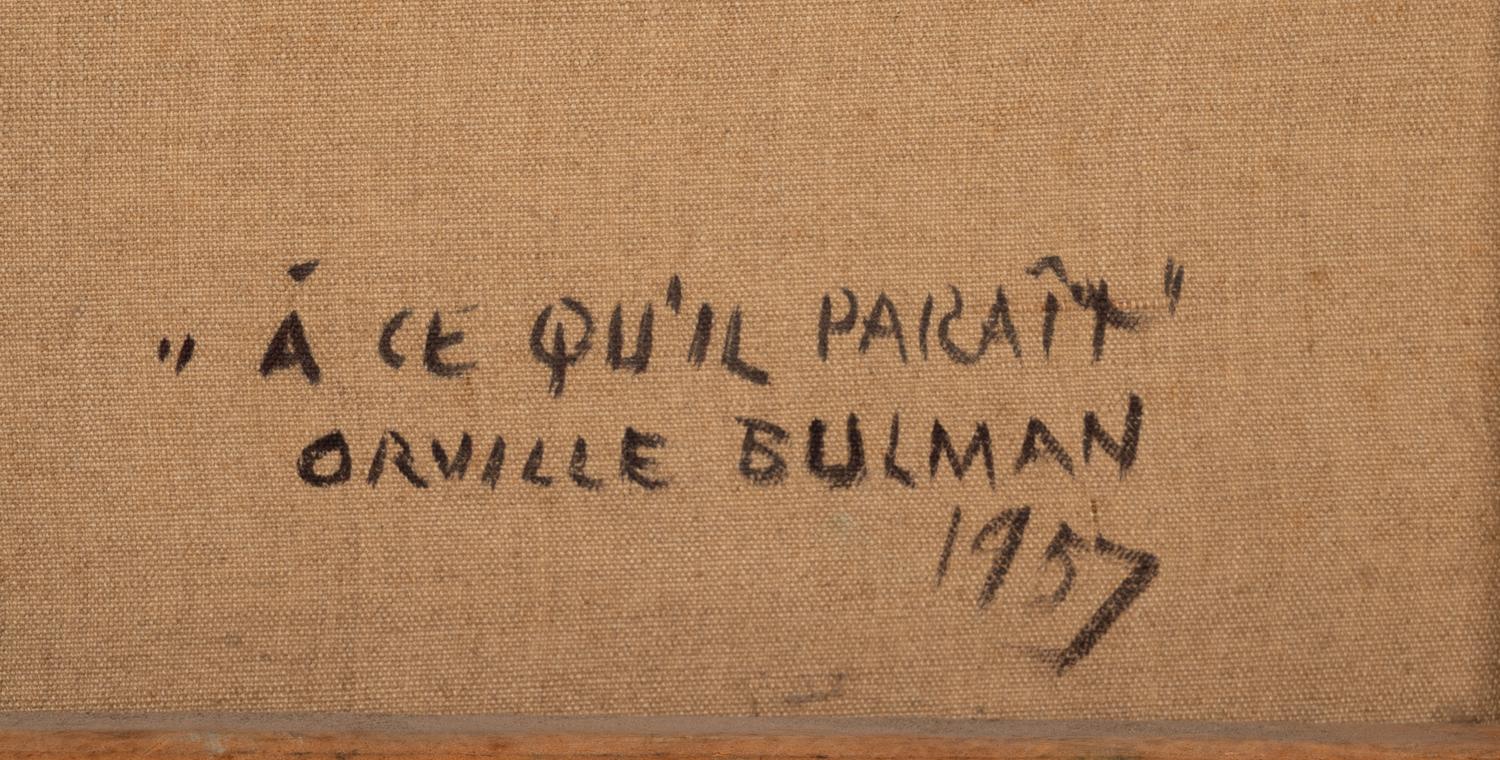 „ À CE QU'IL PARAÎT "
ORVILLE BULMAN
1957